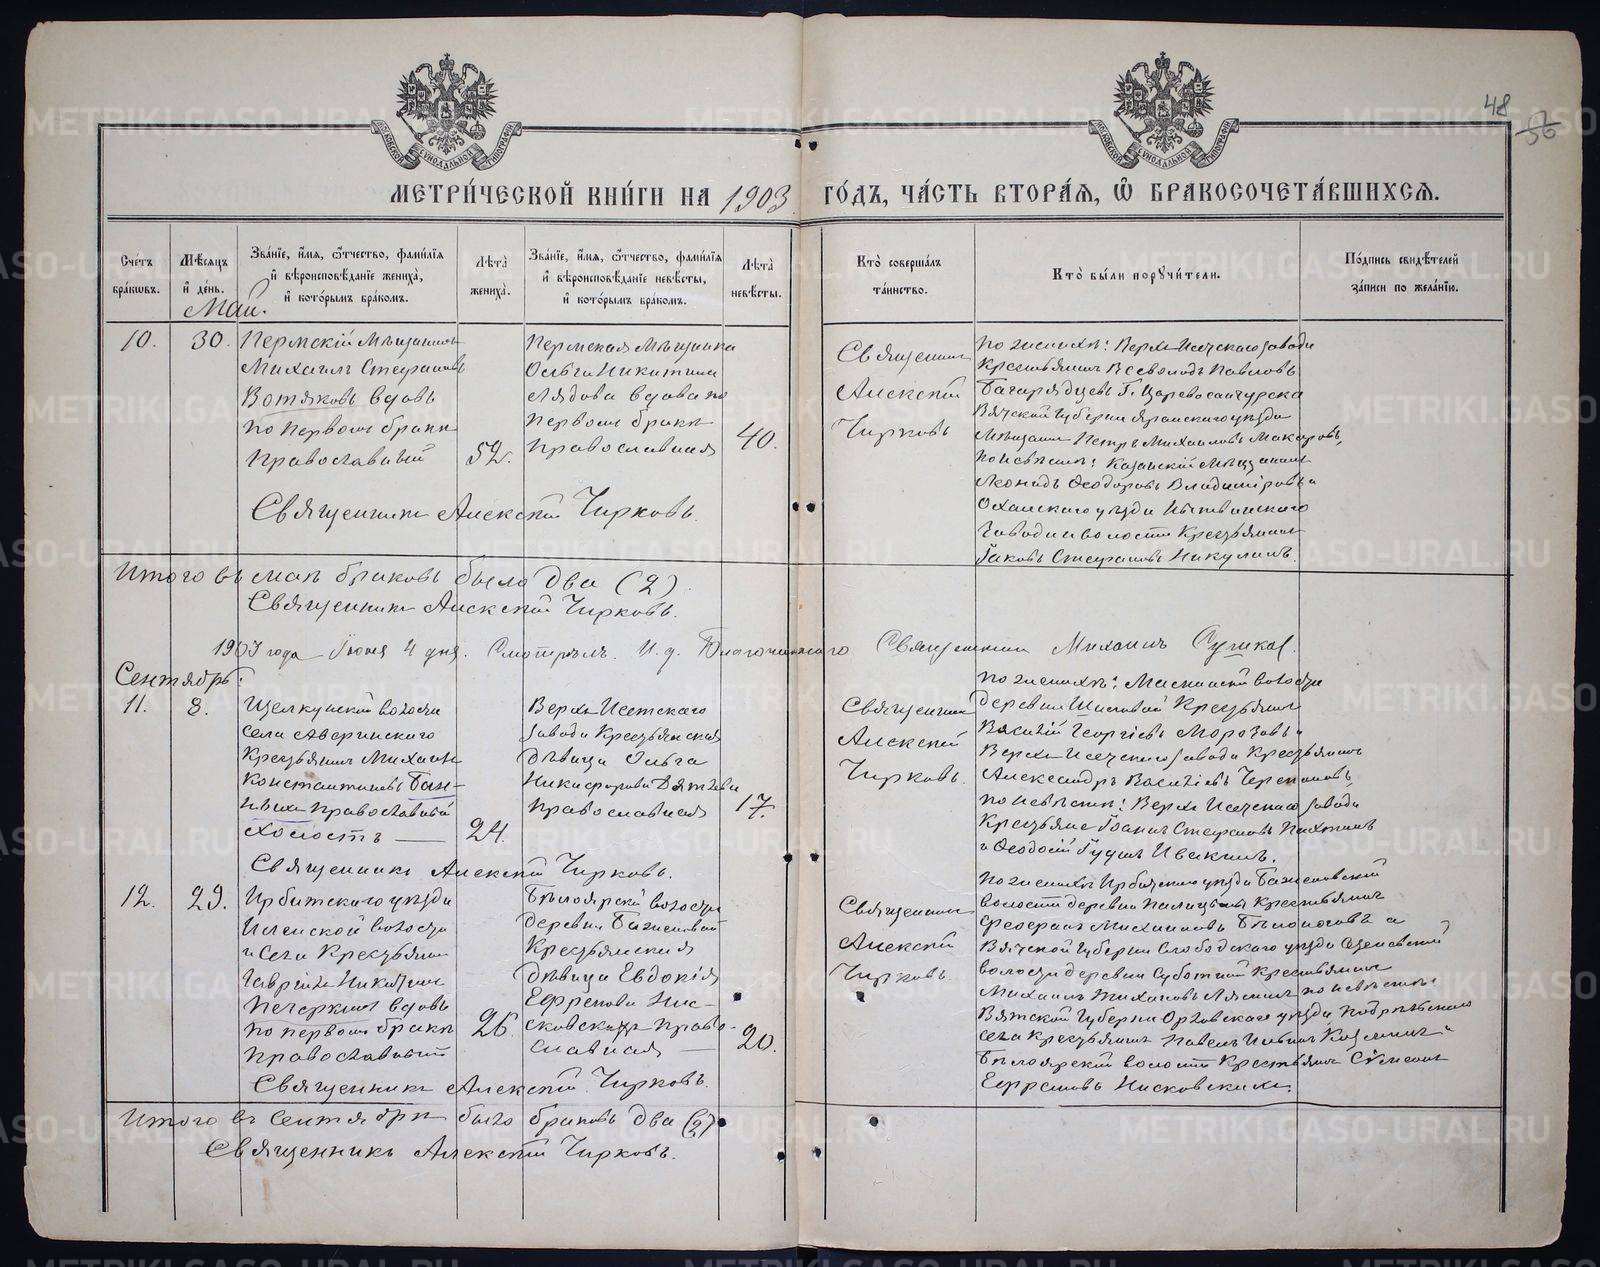 48
56
МЕТРИ́ЧЕСКОЙ КНИ́ГИ НА 1903 ГО́ДЪ, ЧА́СТЬ ВТОРА́Ѧ, Ѡ҆ БРАКОСОЧЕТА́ВШИХСѦ.
Сче́тъ бра́кѡвъ.
Мѣ́сяцъ и҆ де́нь.
Зва́нїе, и҆́мя, ѻ҆́тчество, фами́лїя
и҆ вѣроисповѣ́данїе жениха̀,
и҆ кото́рымъ бра́комъ.
Лѣта̀ жениха̀.
Зва́нїе, и҆́мя, ѻ҆́тчество, фами́лїя
и҆ вѣроисповѣ́данїе невѣ́сты,
и҆ кото́рымъ бра́комъ.
Лѣта̀ невѣ́сты.
Кто̀ соверша́лъ та́инство.
Кто̀ бы́ли порꙋчи́тели.
По́дпись свидѣ́телей за́писи по жела́нїю.
Май.
10.
30.
Пермскій Мѣщанинъ
Михаилъ Стефановъ
Вотяковъ вдовъ
по первомъ бракѣ
православный
52.
Пермская Мѣщанка
Ольга Никитина
Лядова вдова по
первомъ бракѣ
православная
40.
Священникъ
Алексѣй
Чирковъ
по женихѣ: Верхъ Исетскаго завода
Крестьянинъ Всеволодъ Павловъ
Багарядцевъ Г. Царевосанчурска
Вятской Губерніи Яранскаго уѣзда
Мѣщанинъ Петръ Михаиловъ Макаровъ,
по невѣстѣ: Казанскій Мѣщанинъ
Леонидъ Ѳеодоровъ Владиміровъ и
Оханскаго уѣзда Нытвинскаго
завода и волости Крестьянинъ
Іаковъ Стефановъ Никулинъ.
Священникъ Алексѣй Чирковъ.
Итого въ маѣ браковъ было два (2)
Священникъ Алексѣй Чирковъ.
1903 года Іюня 4 дня. Смотрѣлъ. И. д. Благочиннаго Священникъ Михаилъ
Сентябрь:
11.
8.
Щелкунской волости
села Аверинскаго
Крестьянинъ Михаилъ
Константиновъ Бан-
ныхъ православный
холостъ
24.
Верхъ Исетскаго
завода Крестьянская
дѣвица Ольга
Никифорова
православная
17.
Священникъ
Алексѣй
Чирковъ.
по женихѣ: волости
деревни Крестьянинъ
Василій Георгіевъ Морозовъ и
Верхъ Исетскаго завода Крестьянинъ
Александръ Василіевъ Черепановъ,
по невѣстѣ: Верхъ Исетскаго завода
Крестьяне Іоаннъ Стефановъ
и Ѳеодосій Ивакинъ.
Священникъ Алексѣй Чирковъ.
12.
29.
Ирбитскаго уѣзда
Иленской волости
и села Крестьянинъ
Гавріилъ Никитинъ
Печеркинъ вдовъ
по первомъ бракѣ
православный
26.
Бѣлоярской волости
деревни Баженовой
Крестьянская
дѣвица Евдокія
Ефремова Нис-
ковскихъ право-
славная
20.
Священникъ
Алексѣй
Чирковъ
по женихѣ Ирбитскаго уѣзда Баженовской
волости деревни Палицыной Крестьянинъ
Михаиловъ Бѣлоносовъ и
Вятской Губерніи Слободского уѣзда
волости деревни Крестьянинъ
Михаилъ Тихановъ по невѣстѣ:
Вятской Губерніи Орловскаго уѣзда
села Крестьянинъ Павелъ Ильинъ и
Бѣлоярской волости Крестьянинъ Сѷмеонъ
Ефремовъ Нисковскихъ.
Священникъ Алексѣй Чирковъ.
Итого въ Сентябрѣ было браковъ два (2)
Священникъ Алексѣй Чирковъ.
METRIKI.GASO-URAL.RU